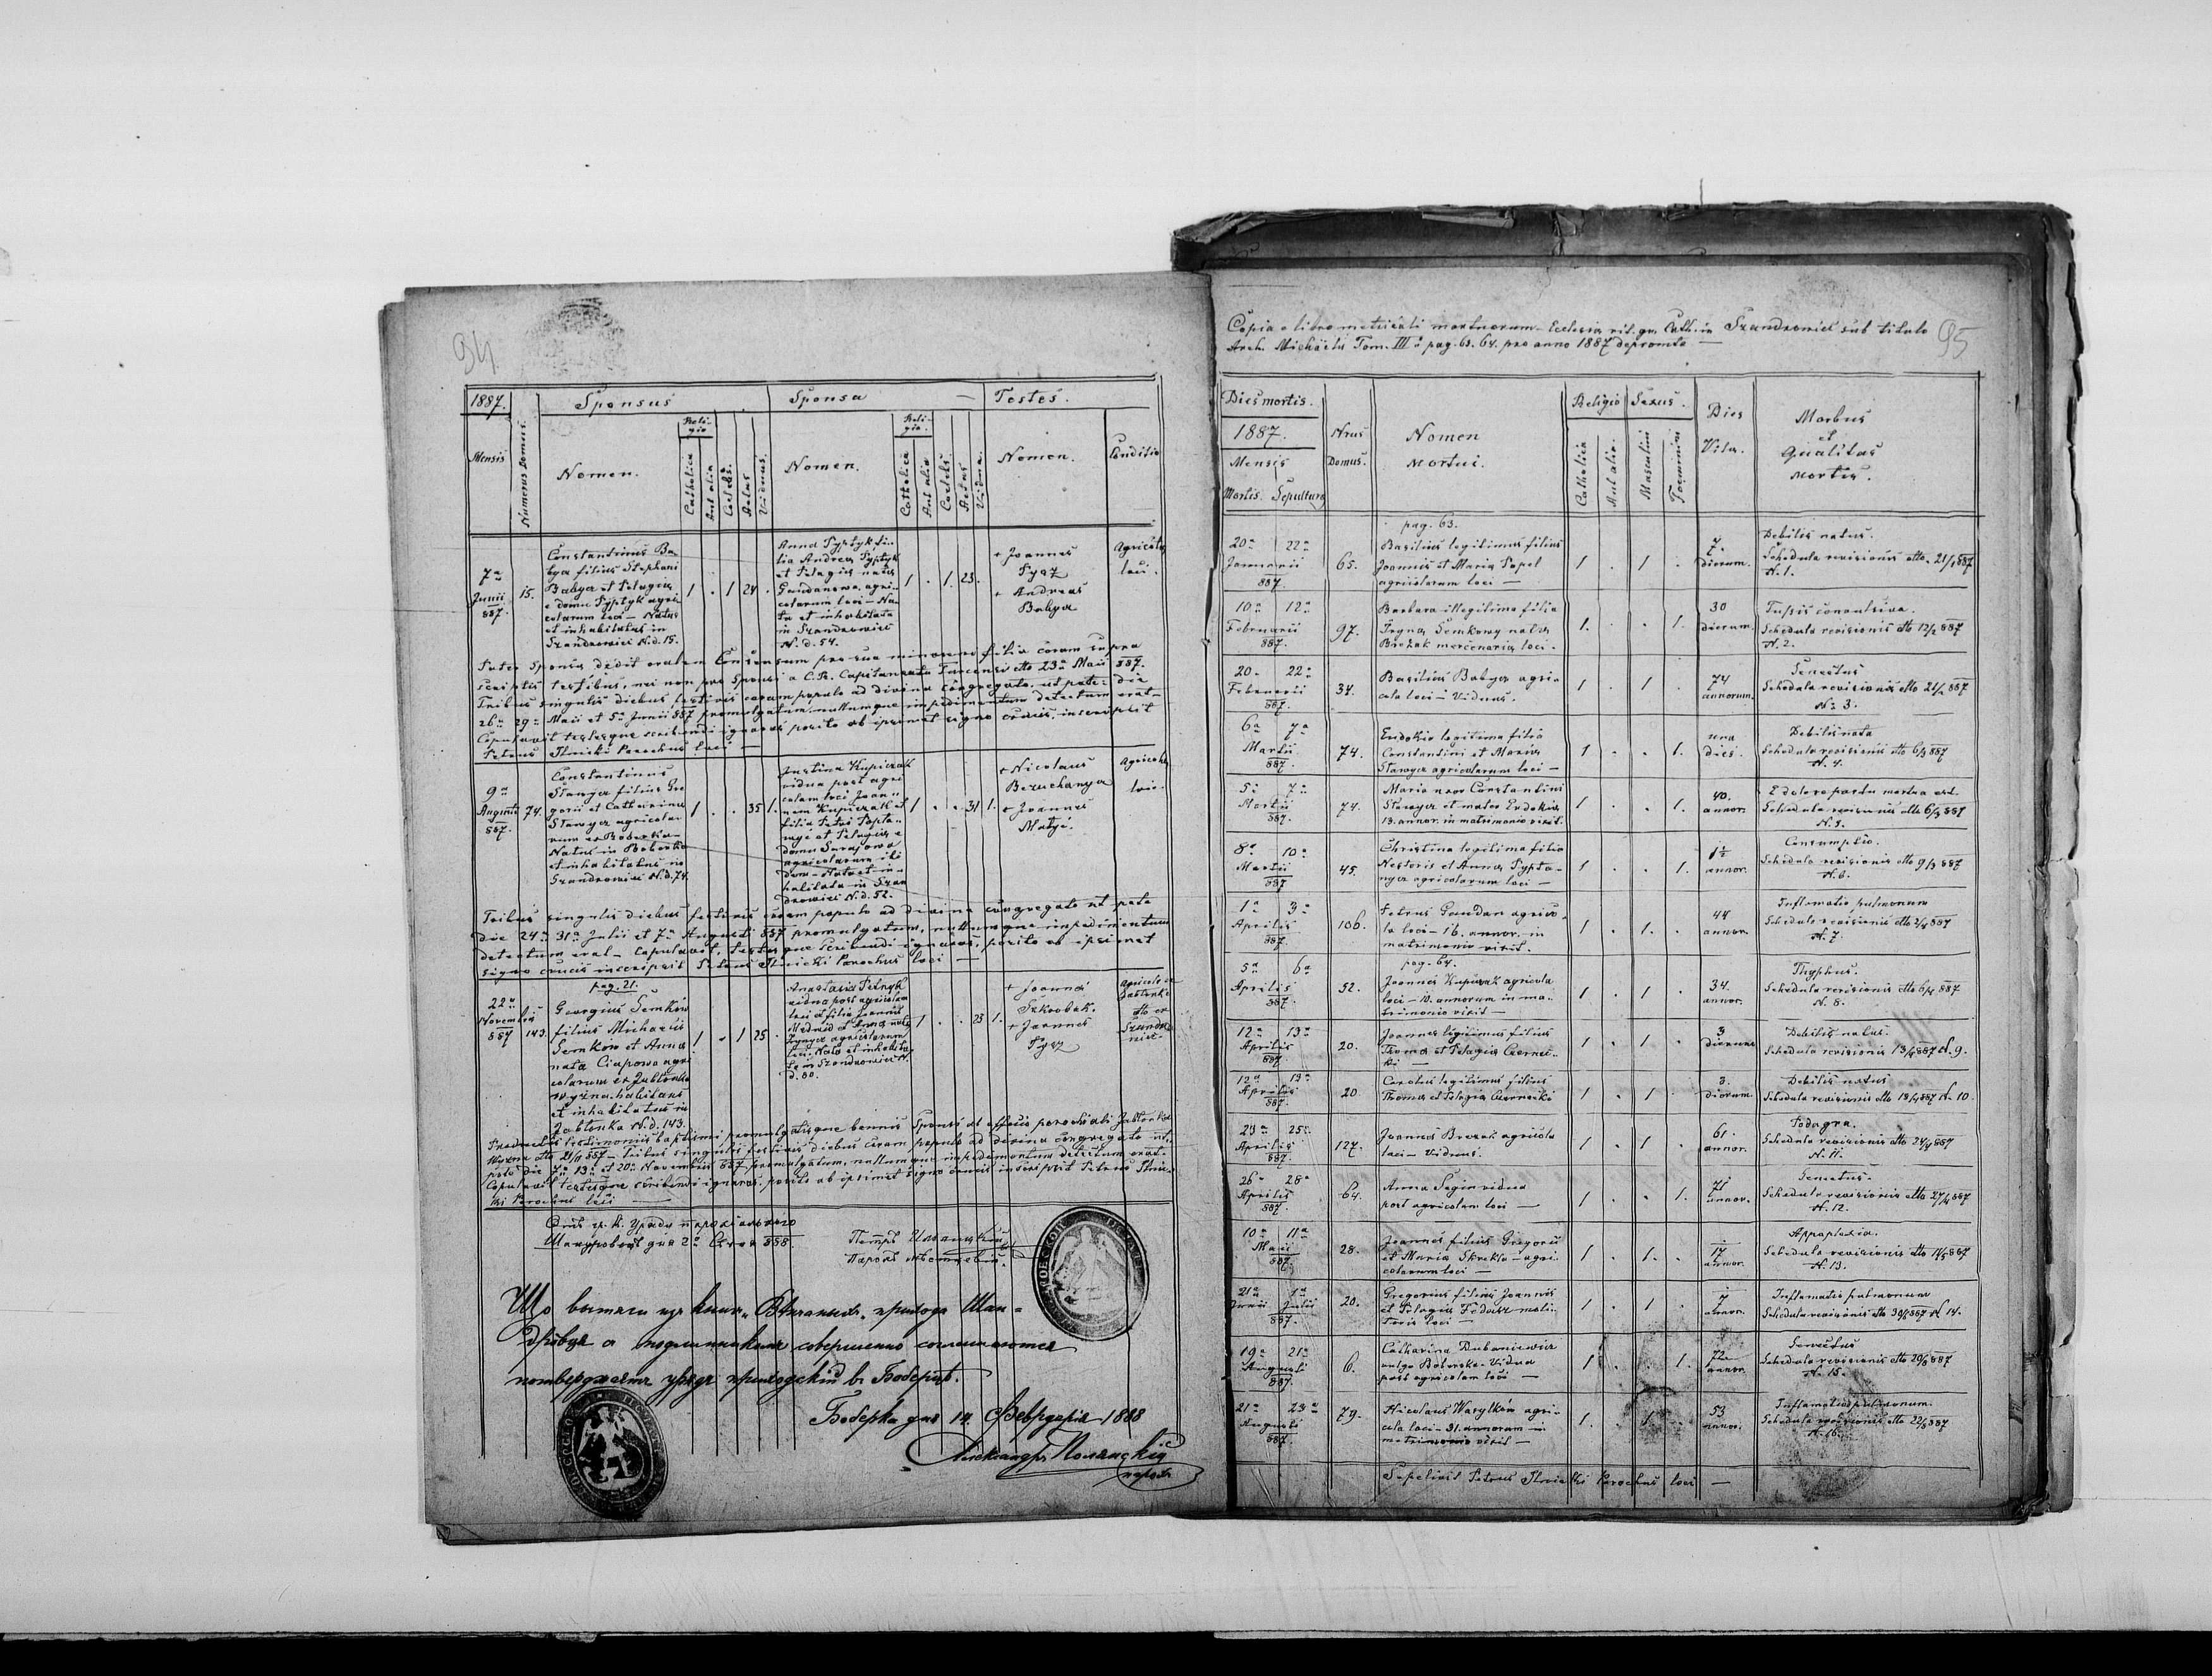 94.
1887. Sponsus Sponsa Testes.
Mensis
Numerus Domus.
Nomen.
Religio
Catholica
Aut alia
Coelebs.
Aetas
Viduus.
Nomen.
Religio.
Catholica
Aut alia
Coelebs
Aetas
Vidua.
Nomen.
Conditio
7ª
Junii
887.
15.
Constantinus Ba-
bya filius Stephani
Babya et Pelagia
e domo Pyptyk agri
colarum loci – Natus
et inhabitatus in
Szandrowiec N.d. 15.
1 . 1 24 .
Anna Pyptyk fi-
lia Andrea Pyptyk
et Pelagia nata
Gandanowa agri-
colarum loci – Na-
ta et inhabitata
in Szandrowiec
N. d. 54.
1 . 1. 23.
+ Joannes
Pyaz
+ Andreas
Babya
Agricola
loci.
Pater Sponsa dedit oralem Consensum pro sua minorenni filia coram supra
scriptis testibus,
Tribus singulis diebus festivis coram populo ad divina congregato, ut pate: die
26ª 29ª Maii et 5ª Junii 887 promulgatum, nullumque impedimentum detectum erat –
Copulavit testesque scribendi ignaros posito ab ipsimet signo crucis, inscripsit
Petrus Ilnicki Parochus loci –
9ª
Augusti
887.
74.
Constantinus
Stawya filius Gre
gorii et Catharina
Stawya agricola-
rum ex Boberka –
Natus in Boberka
et inhabitatus in
Szandrowiec N.d. 74.
1 . . 35 1.
Justina Kupiczak
vidua post agri
colam loci Joan-
nem Kupiczak et
filia Petri Popta-
nyi et Pelagia e
domo Surajowa
agricolarum ibi
dem – Nata et in-
habitata in Szan
drowiec N.d. 52.
1 . . 31 1.
+ Nicolaus
Bezuchanya
+ Joannes
Matyi.
Agricola
loci.
Tribus singulis diebus festivis coram populo ad divina congregato ut pate
die 24ª 31ª Julii et 7ª Augusti 887 promulgatum, nullumque impedimentum
detectum erat – Copulavit, testesque scribendi ignaros, posito ab ipsimet
signo crucis inscripsit Petrus Ilnicki Parochus loci –
pag. 21.
22ª
Novembris
887
143.
Georgius Semkow
filius Michaelis
Semkow et Anna
nata Ciapowa agri
colarum ex Jablonka
wyzna habitans
et inhabitatus in
Jablonka N.d. 143.
1 . 1 25 .
Anastasia Petryk
vidua post agricolam
loci et filia Joannis
et Anna nata
agricolarum
loci. Nata et inhabita
ta in Szandrowiec N.
d. 80.
1 . . 23 1.
+ Joannes
Szkrobak.
+ Joannes
Pyaz
Agricola ex
Jablonka
tto ex
Szandro
wiec.
Tribus singulis festivis diebus coram populo ad divina congregato ut
pate die 7ª 13ª et 20ª Novembris 887 promulgatum, nullumque impedimentum detectum erat –
Copulavit testesque scribendi ignaros, posito ab ipsimet signo crucis inscripsit Petrus Ilnic-
ki Parochus loci –
Отъ гр. к. Уряду парохіального
Шандровецъ дня 2ª Січня 888.
Петръ Ильницкій
Парохъ мѣстцевый.
Що вытягъ изъ книги „Вѣнчаныхъ" прихода Шан-
дровця съ подлинникомъ совершенно соглашается
потверджаетъ урядъ приходскій въ Боберцѣ.
Боберка дня 14. Февруарія 1888
Александръ Полянскій
парохъ
Copia e libro metricali mortuorum – Ecclesia rit. gr. Cath. in Szandrowiec sub titulo
Arch. Michaelis Tom. III a pag. 63. 64. pro anno 1887 depromta –
95
Dies mortis.
1887.
Mensis
Mortis. Sepultura
Nrus
Domus.
Nomen
Mortui.
Religio
Catholica
Aut alia.
Sexus.
Masculini
Foeminini
Dies
Vita.
Morbus
et
qualitas
mortis.
pag. 63.
20ª 22ª
Januarii
887.
65.
Basilius legitimus filius
Joannis et Maria Popel
agricolarum loci –
1 . 1 .
7.
dierum.
Debilis natus.
Schedula revisionis dtto. 21/1 887
N. 1.
10ª 12ª
Februarii
887.
97.
Barbara illegitima filia
Semkowy nata
Brezak mercenaria loci.
1. . . 1.
30
dierum.
Tussis convulsiva.
Schedula revisionis dtto 12/2 887
N. 2.
20. 22ª
Februarii
887.
34.
Basilius Babya agri-
cola loci – Viduus.
1 . 1 .
74
annorum.
Senectus
Schedula revisionis dtto 21/2 887
Nº 3.
6ª 7ª
Martii
887.
74.
Eudokia legitima filia
Constantini et Maria
Stawya agricolarum loci –
1 . . 1.
una
dies.
Debilis nata
Schedula revisionis dtto 6/3 887
N. 4.
5ª 7ª
Martii
887.
74.
Maria uxor Constantini
Stawya et mater Eudokia
13. annor. in matrimonio vixit.
1 . . 1.
40.
annor.
E dolore partu mortua est.
Schedula revisionis dtto 6/3 887
N. 5.
8ª 10ª
Martii
887
45.
Christina legitima filia
Nestoris et Anna Pypta-
nya agricolarum loci –
1 . . 1.
1½
annor.
Consumptio.
Schedula revisionis dtto 9/3 887
N. 6.
1ª 3ª
Aprilis
887.
106.
Petrus Gandan agrico-
la loci – 16. annor. in
matrimonio vixit.
1 . 1. .
44
annor.
Inflamatio pulmonum
Schedula revisionis dtto 2/4 887
N. 7.
pag. 64.
5ª 6ª
Aprilis
887.
52.
Joannes Kupiczak agricola
loci – 10. annorum in ma-
trimonio vixit –
1 . 1 .
34.
annor.
Thyphus.
Schedula revisionis dtto 6/4 887
N. 8.
12ª 13ª
Aprilis
887
20.
Joannes legitimus filius
Thoma et Pelagia Czernec-
ki –
1 . 1 .
3
dierum
Debilis natus.
Schedula revisionis 13/4 887 N. 9.
12ª 13ª
Aprilis
887.
20
Carolus legitimus filius
Thoma et Pelagia Czernecki
1 . 1 .
3.
dierum.
Debilis natus
Schedula revisionis dtto 13/4 887 N. 10.
23ª 25ª
Aprilis
887.
127.
Joannes Brezak agricola
loci – Viduus.
1 . 1 .
61.
annor.
Podagra.
Schedula revisionis dtto 24/4 887
N. 11.
26ª 28ª
Aprilis
887.
64.
Anna Segin vidua
post agricolam loci –
1 . . 1.
71
annor.
Senectus.
Schedula revisionis dtto 27/4 887
N. 12.
10ª 11ª
Maii
887.
28.
Joannes filius Gregorii
et Maria Skrekla – agri-
colarum loci –
1 . 1. .
17
annor.
Appoplexia.
Schedula revisionis dtto 11/5 887
N. 13.
1ª
Junii Julii
887.
20.
Gregorius filius Joannis
et Pelagia Fedasz moli-
toris loci –
1 . 1 .
annor.
Inflamatio pulmonum
Schedula revisionis dtto 30/6 887 N. 14.
19ª 21ª
Augusti
887
6.
Catharina Dubaniewicz
vulgo vidua
post agricolam loci –
1 . . 1.
72
annor.
Senectus
Schedula revisionis dtto 20/8 887
N. 15.
21ª 23ª
Augusti
887.
79.
Nicolaus Wasylkow agri-
cola loci – 31. annorum in
matrimonio vixit –
1. . 1 .
53
annor.
Inflamatio pulmonum.
Schedula revisionis dtto 22/8 887
N. 16.
Sepelivit Petrus Ilnicki Parochus loci –